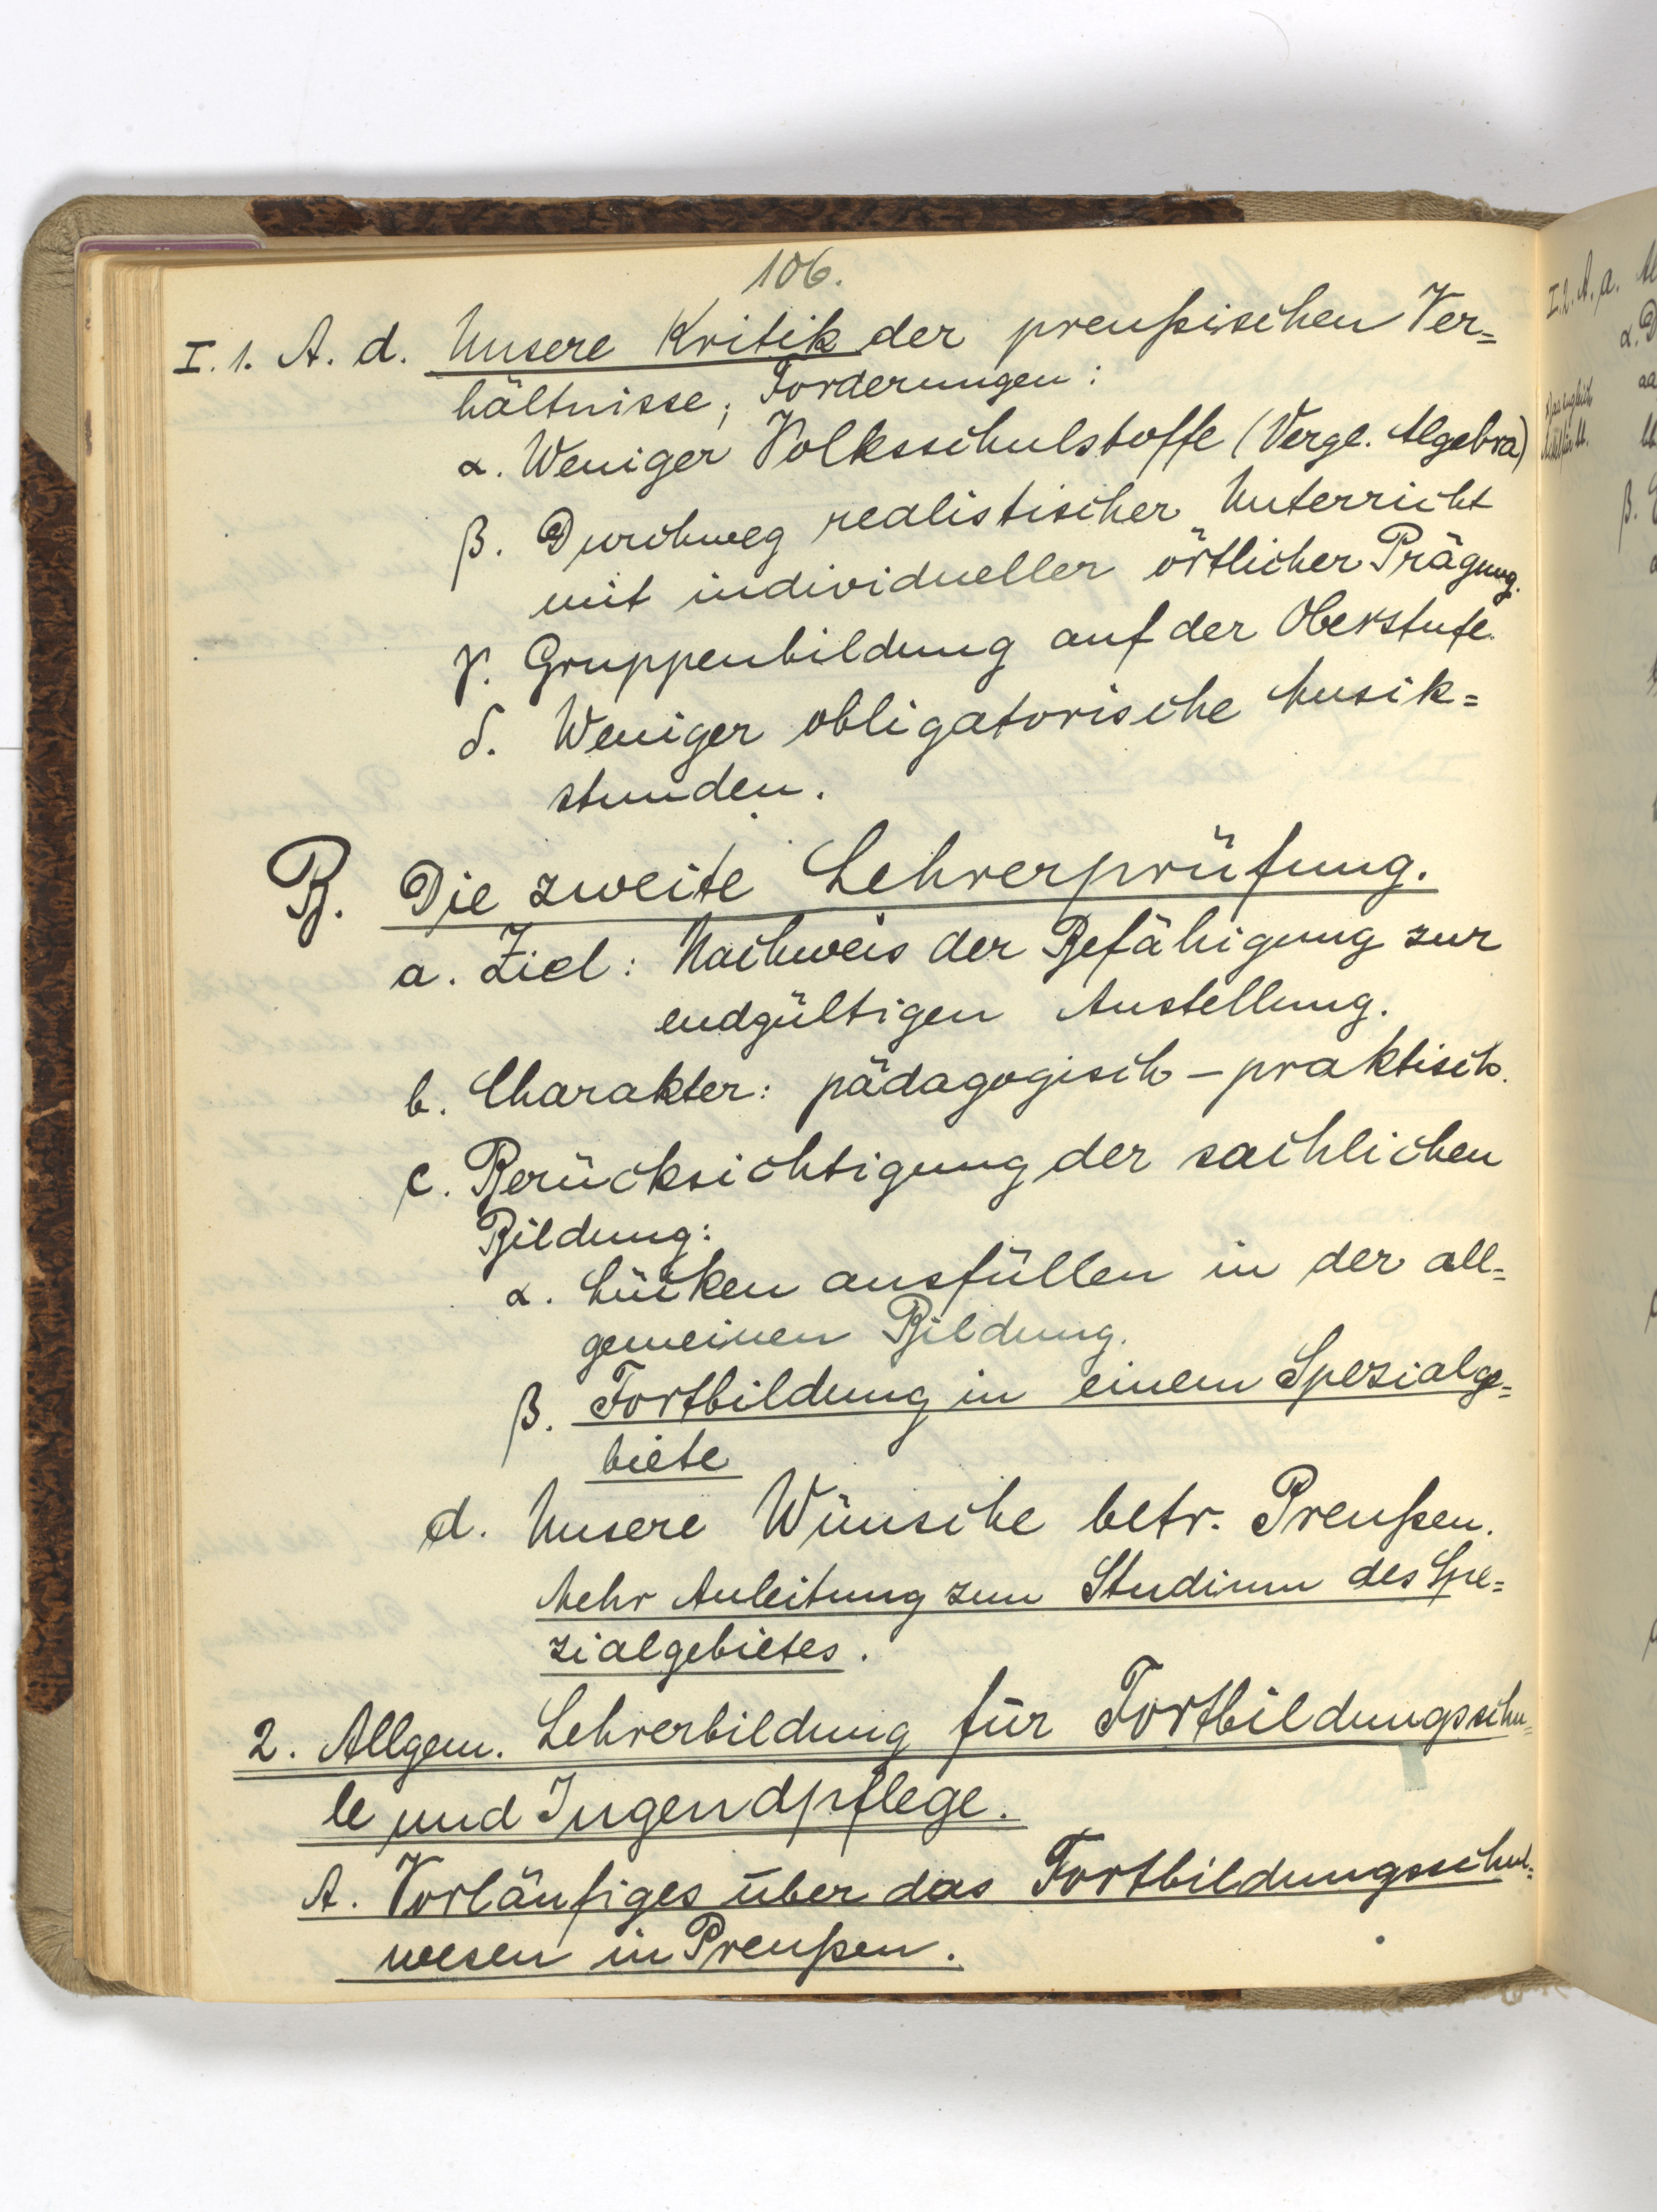 106.
I. 1. A. d. Unsere Kritik der preußischen Ver=
hältnisse, Forderungen:
α. Weniger Volksschulstoffe (Vergl. Algebra)
β. Durchweg realistischer Unterricht
mit individueller örtlicher Prägung.
γ. Gruppenbildung auf der Oberstufe.
δ. Weniger obligatorische Musik=
stunden.
B. Die zweite Lehrerprüfung.
a. Ziel: Nachweis der Befähigung zur
endgültigen Anstellung.
b. Charakter: pädagogisch – praktisch.
c. Berücksichtigung der sachlichen
Bildung:
α. Lücken ausfüllen in der all=
gemeinen Bildung.
β. Fortbildung in einem Spezialge=
biete
d. Unsere Wünsche betr. Preußen.
Mehr Anleitung zum Studium des Spe=
zialgebietes.
2. Allgem. Lehrerbildung für Fortbildungsschu=
le und Jugendpflege.
A. Vorläufiges über das Fortbildungsschul=
wesen in Preußen.
I. 2. A. a.
α.
aa
β.